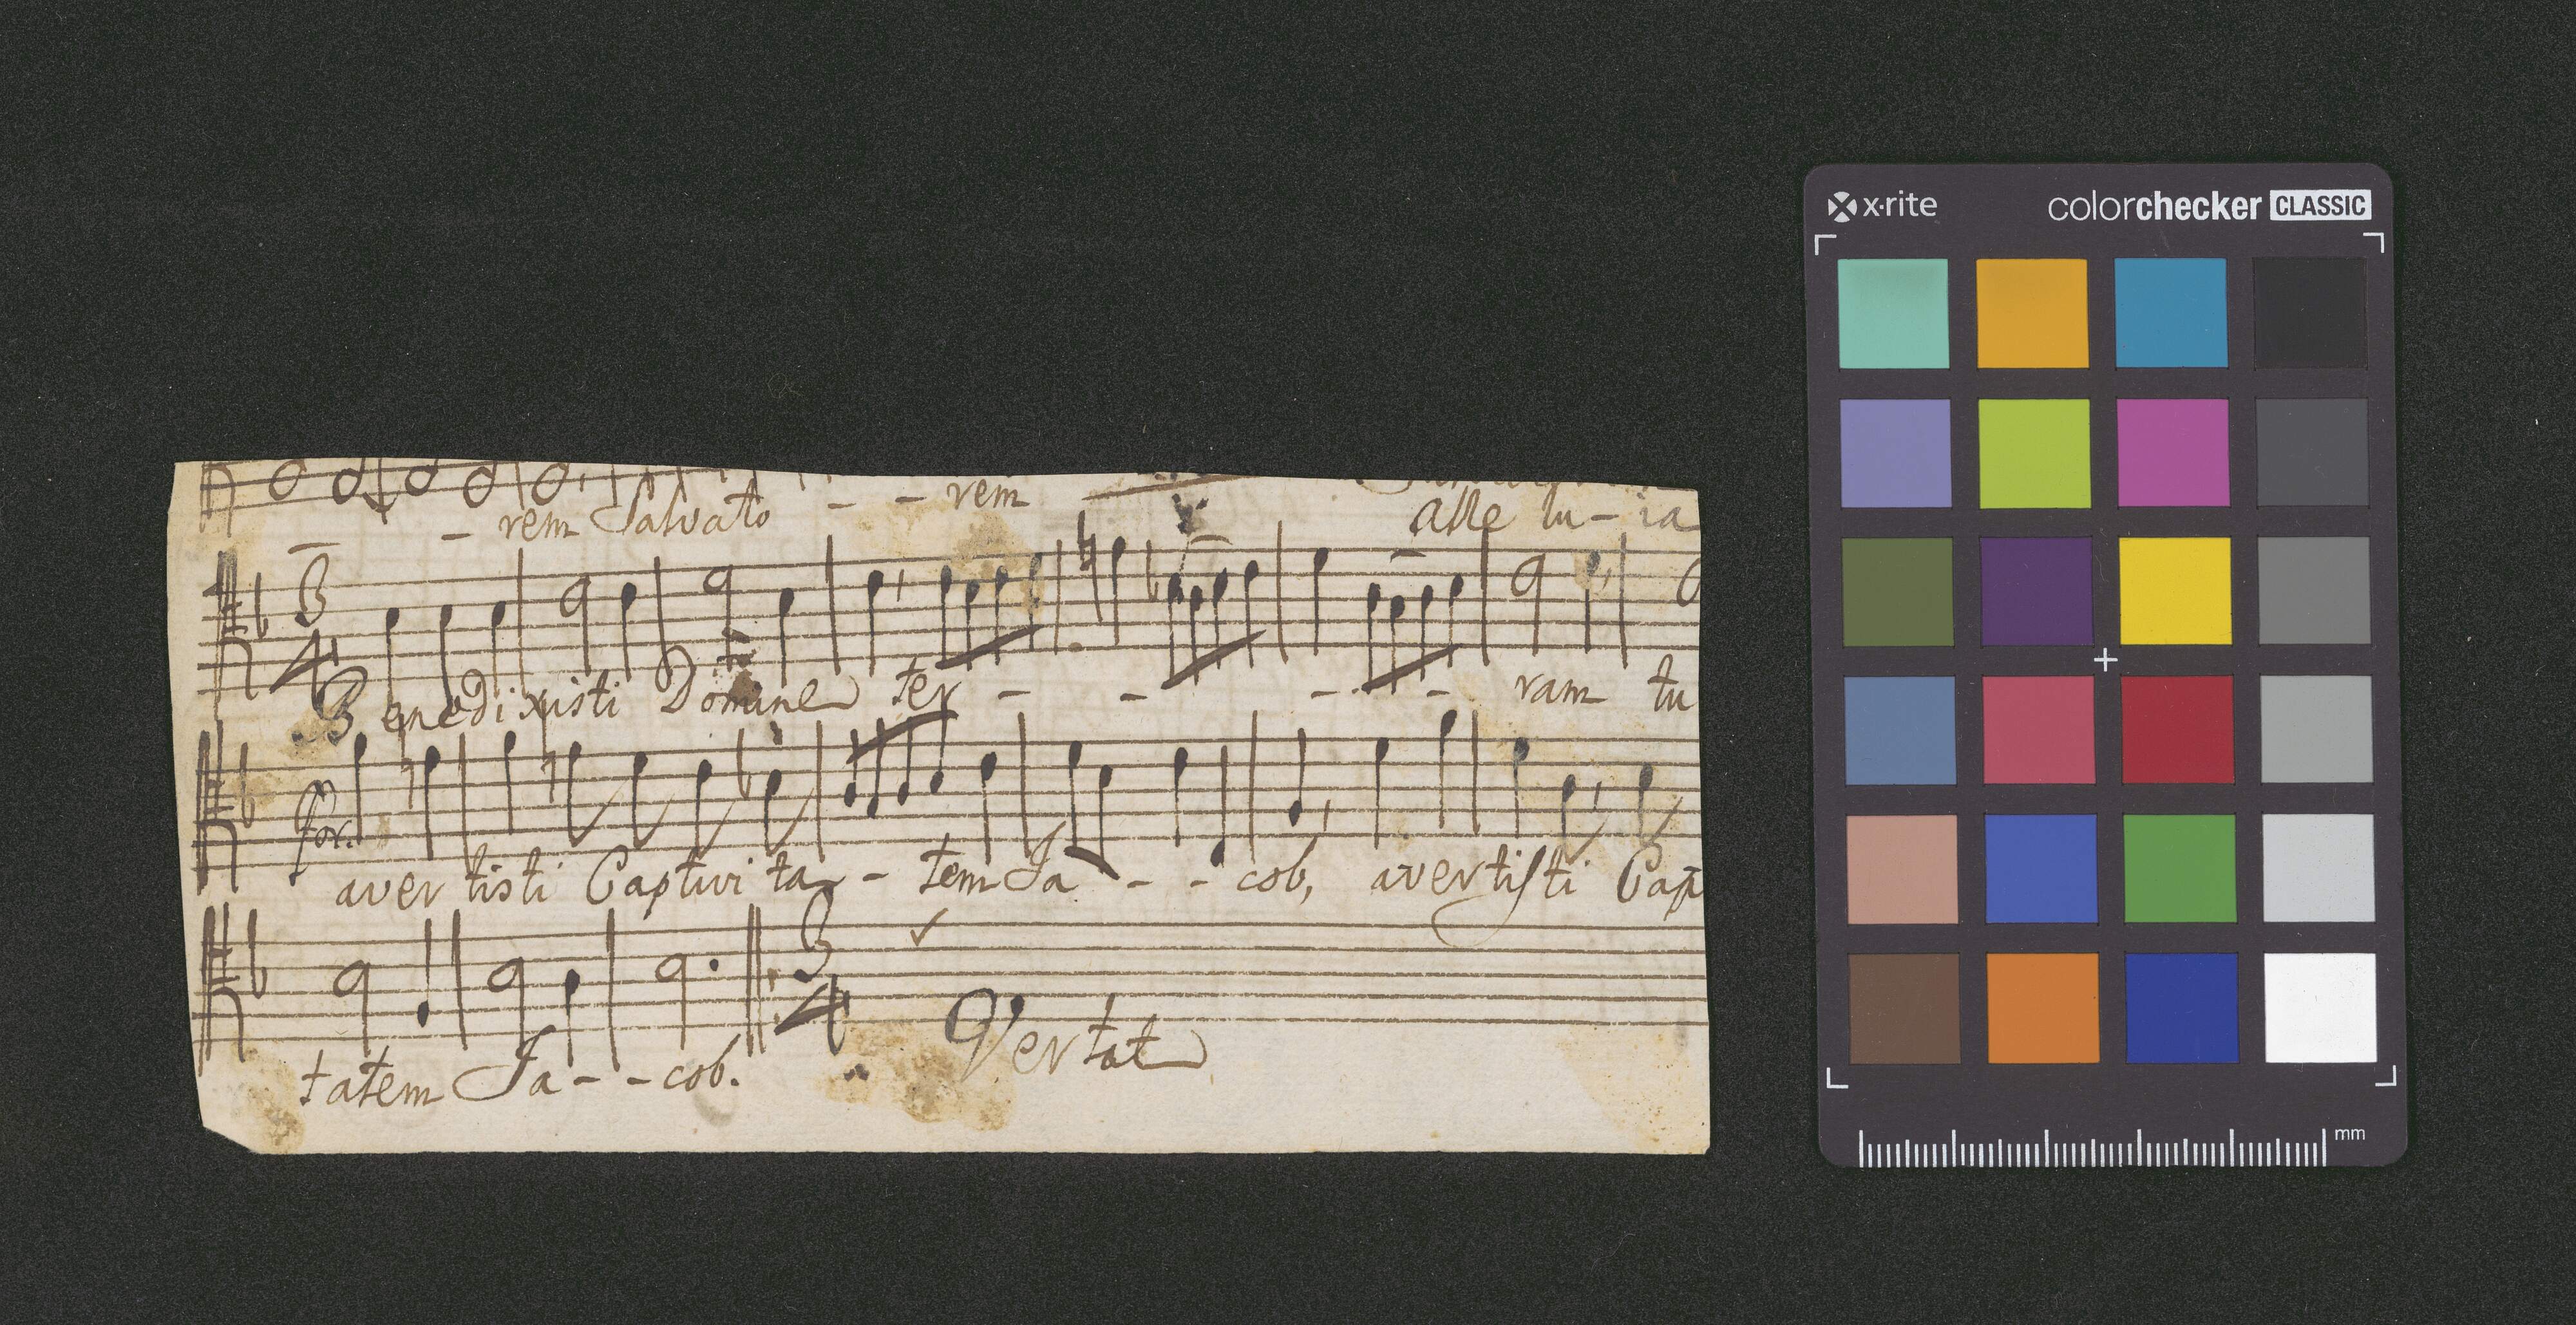 - rem Salvato - - rem alle lu - ia
3
4
Benedixisti Domine ter - - - - ram tu
for.
avertisti Captivita - tem Ja - - cob, avertisti Cap
3
4
Vertat
tatem Ja - - cob.
x·rite colorchecker CLASSIC
mm